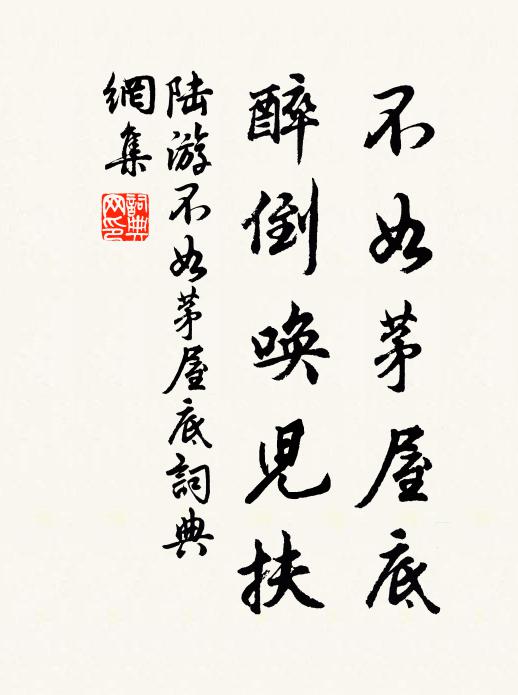 不如茅屋底
醉倒唤兒扶
陆游不如茅屋底詞典
網集
詞典
网印